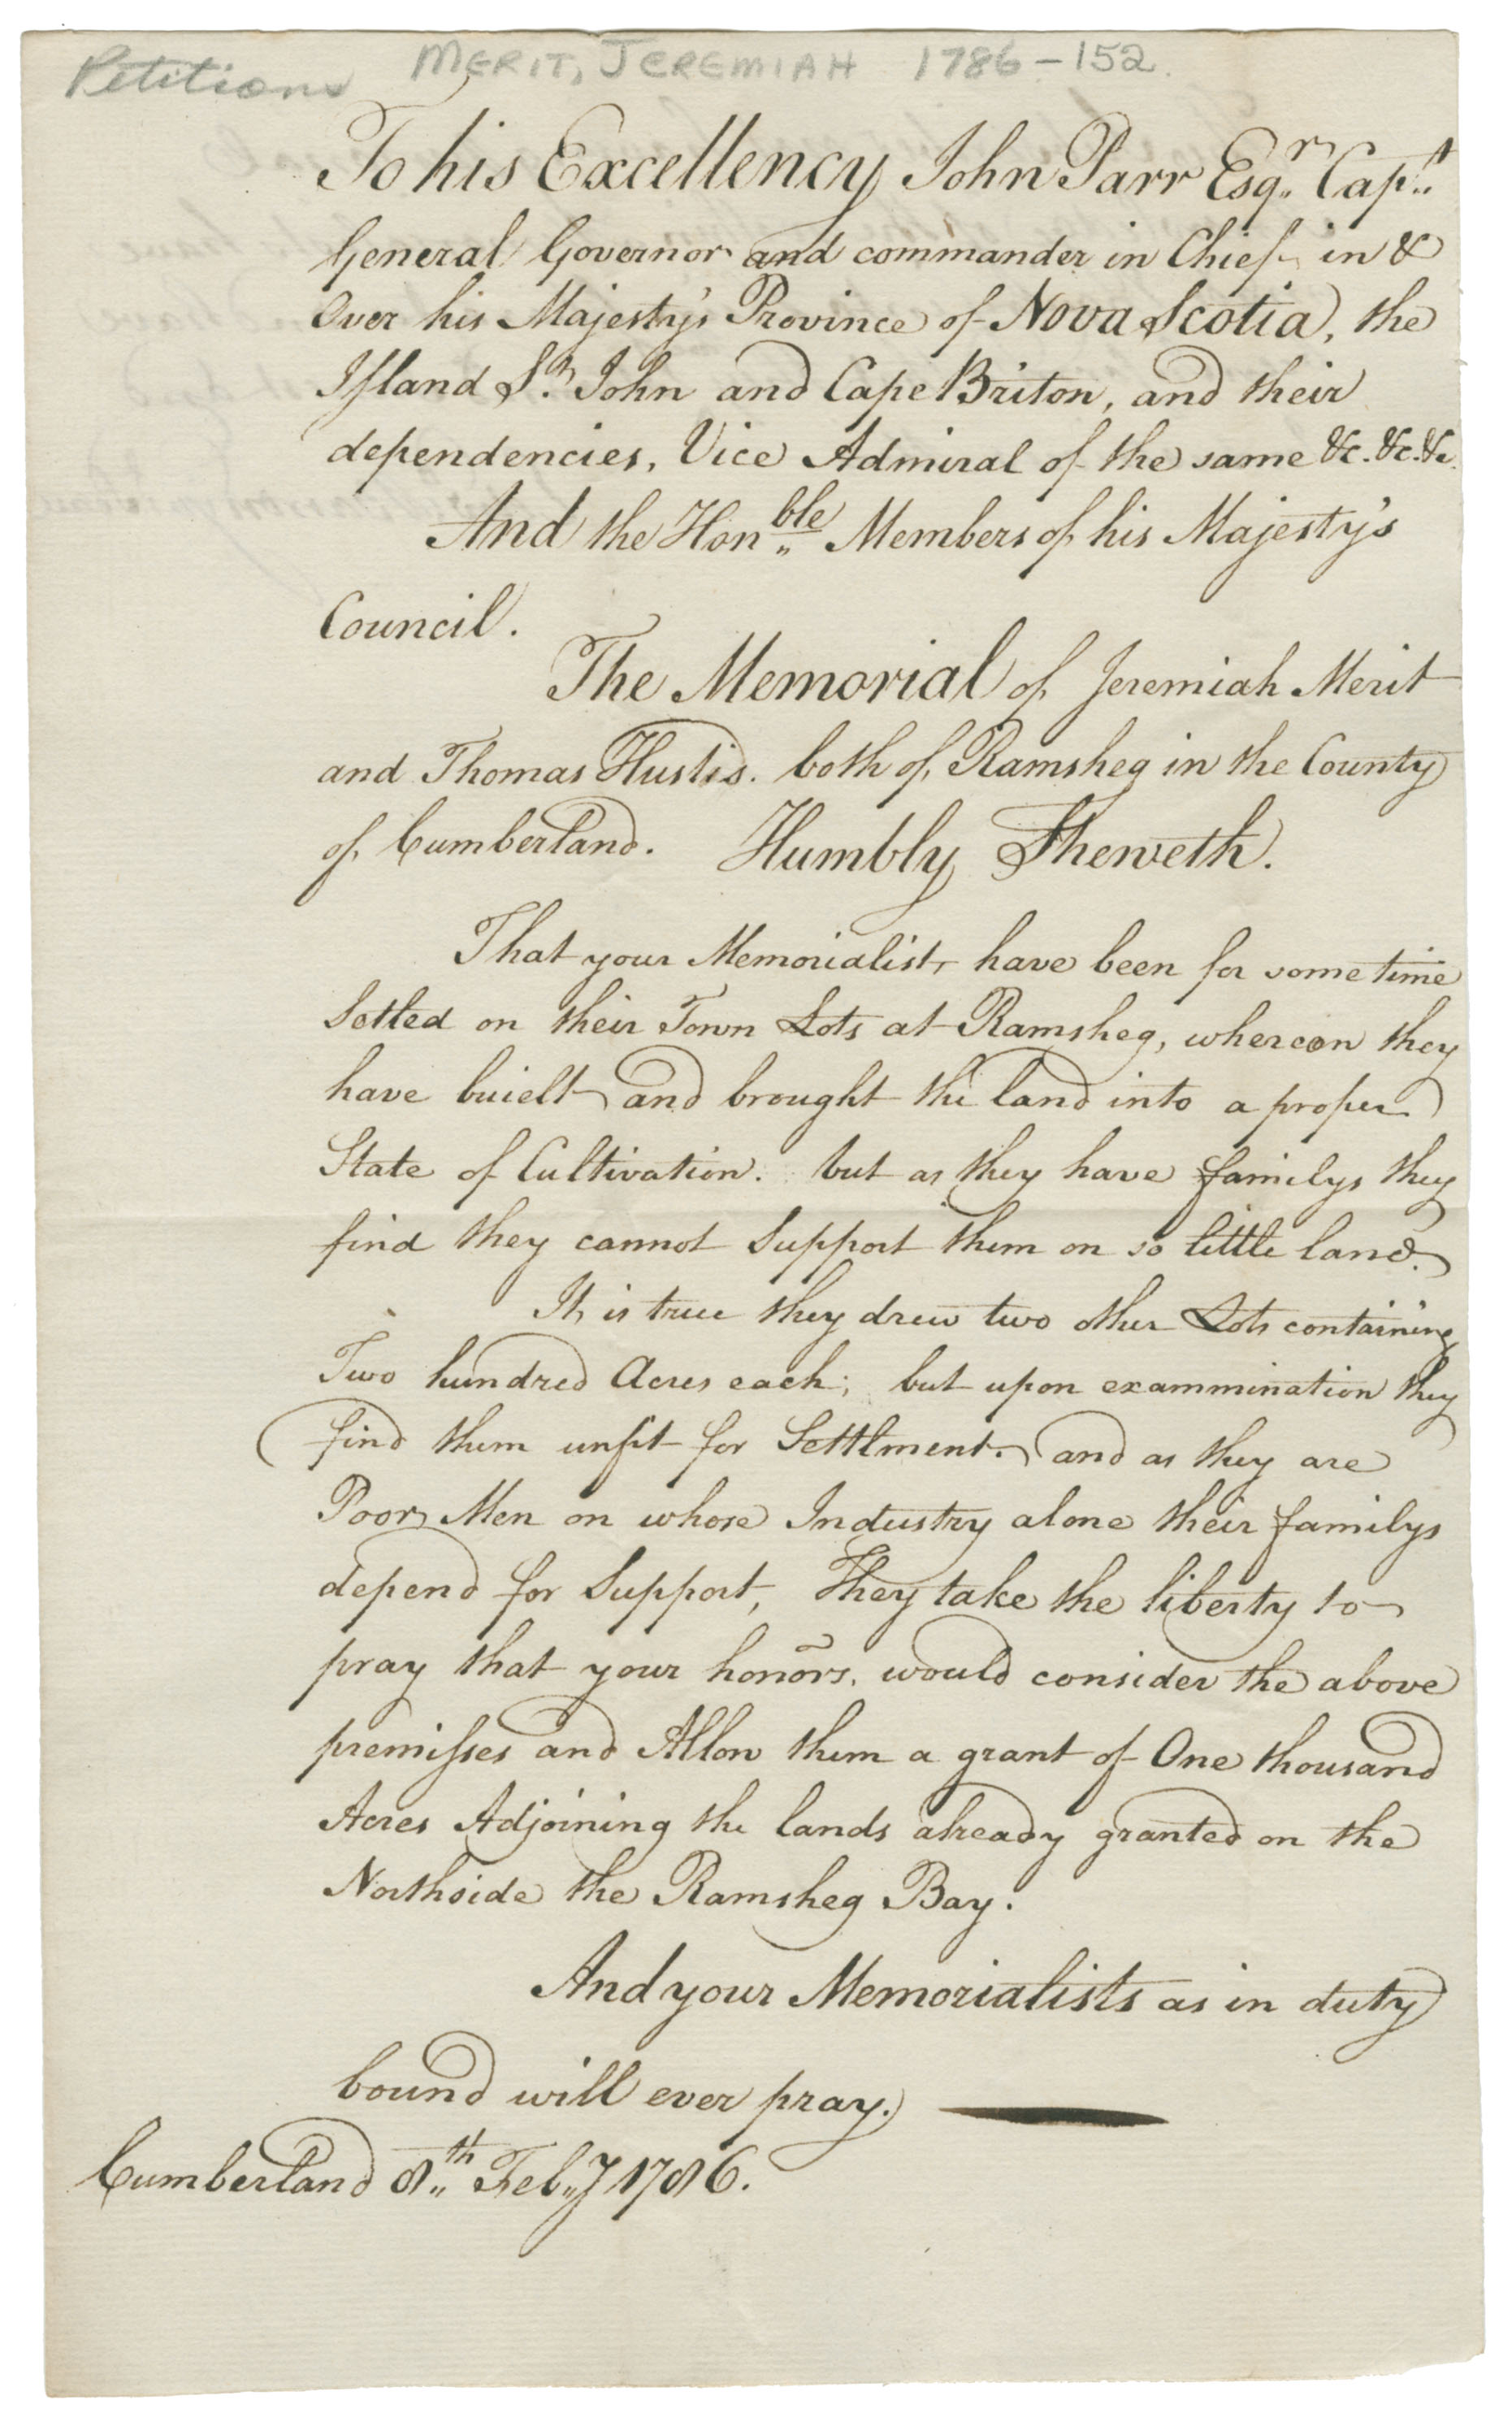 Petitions MERIT, JEREMIAH 1786-152.
To his Excellency John Parr Esqr. Capt.
General Governor and commander in Chief in &
Over his Majesty's Province of Nova Scotia, the
Island St. John and Cape Briton, and their
dependencies, Vice Admiral of the same &c. &c. &c.
And the Honble Members of his Majesty's
Council.
The Memorial of Jeremiah Merit
and Thomas Hustis. both of Ramsheg in the County
of Cumberland. Humbly Sheweth.
That your Memorialists have been for some time
Setled on their Town Lots at Ramsheg, whereon they
have buielt and brought the land into a proper
State of Cultivation. but as they have familys they
find they cannot Support them on so little land.
It is true they drew two other Lots containing
Two hundred Acres each; but upon exammination they
find them unfit for Settlment. and as they are
Poor Men on whose Industry alone their familys
depend for Support, They take the liberty to
pray that your honors. would consider the above
premisses and Allow them a grant of One thousand
Acres Adjoining the lands already granted on the
Northside the Ramsheg Bay.
And your Memorialists as in duty
bound will ever pray.
Cumberland 8th Feby 1786.